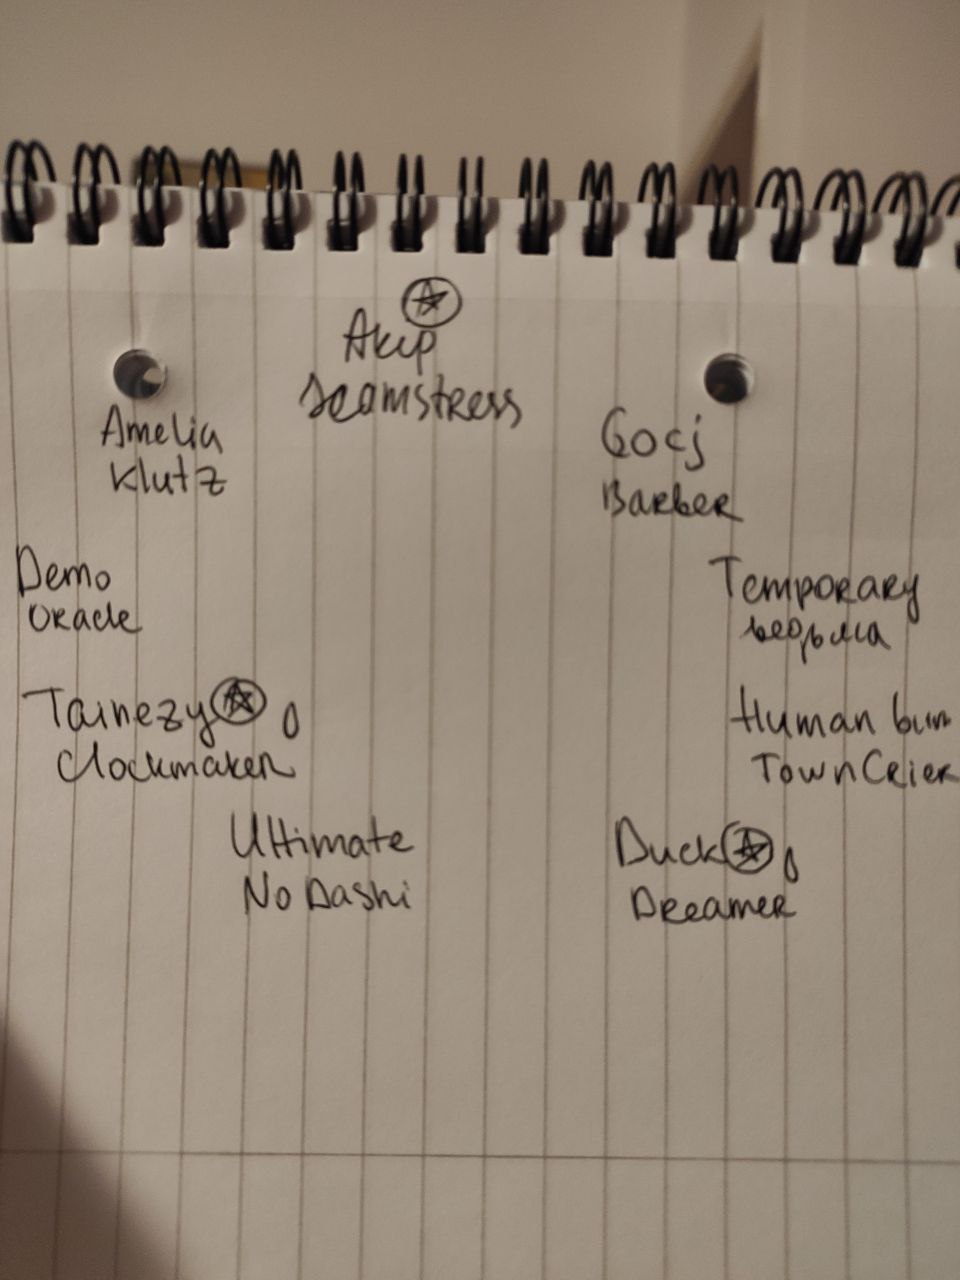 Akip
Seamstress
Amelia
Klutz
Gocj
Barber
Demo
Oracle
Temporary
ведьма
Tainezy 0
Clockmaker
Human bun
Town Crier
Ultimate
No Dashi
Duck 0
Dreamer